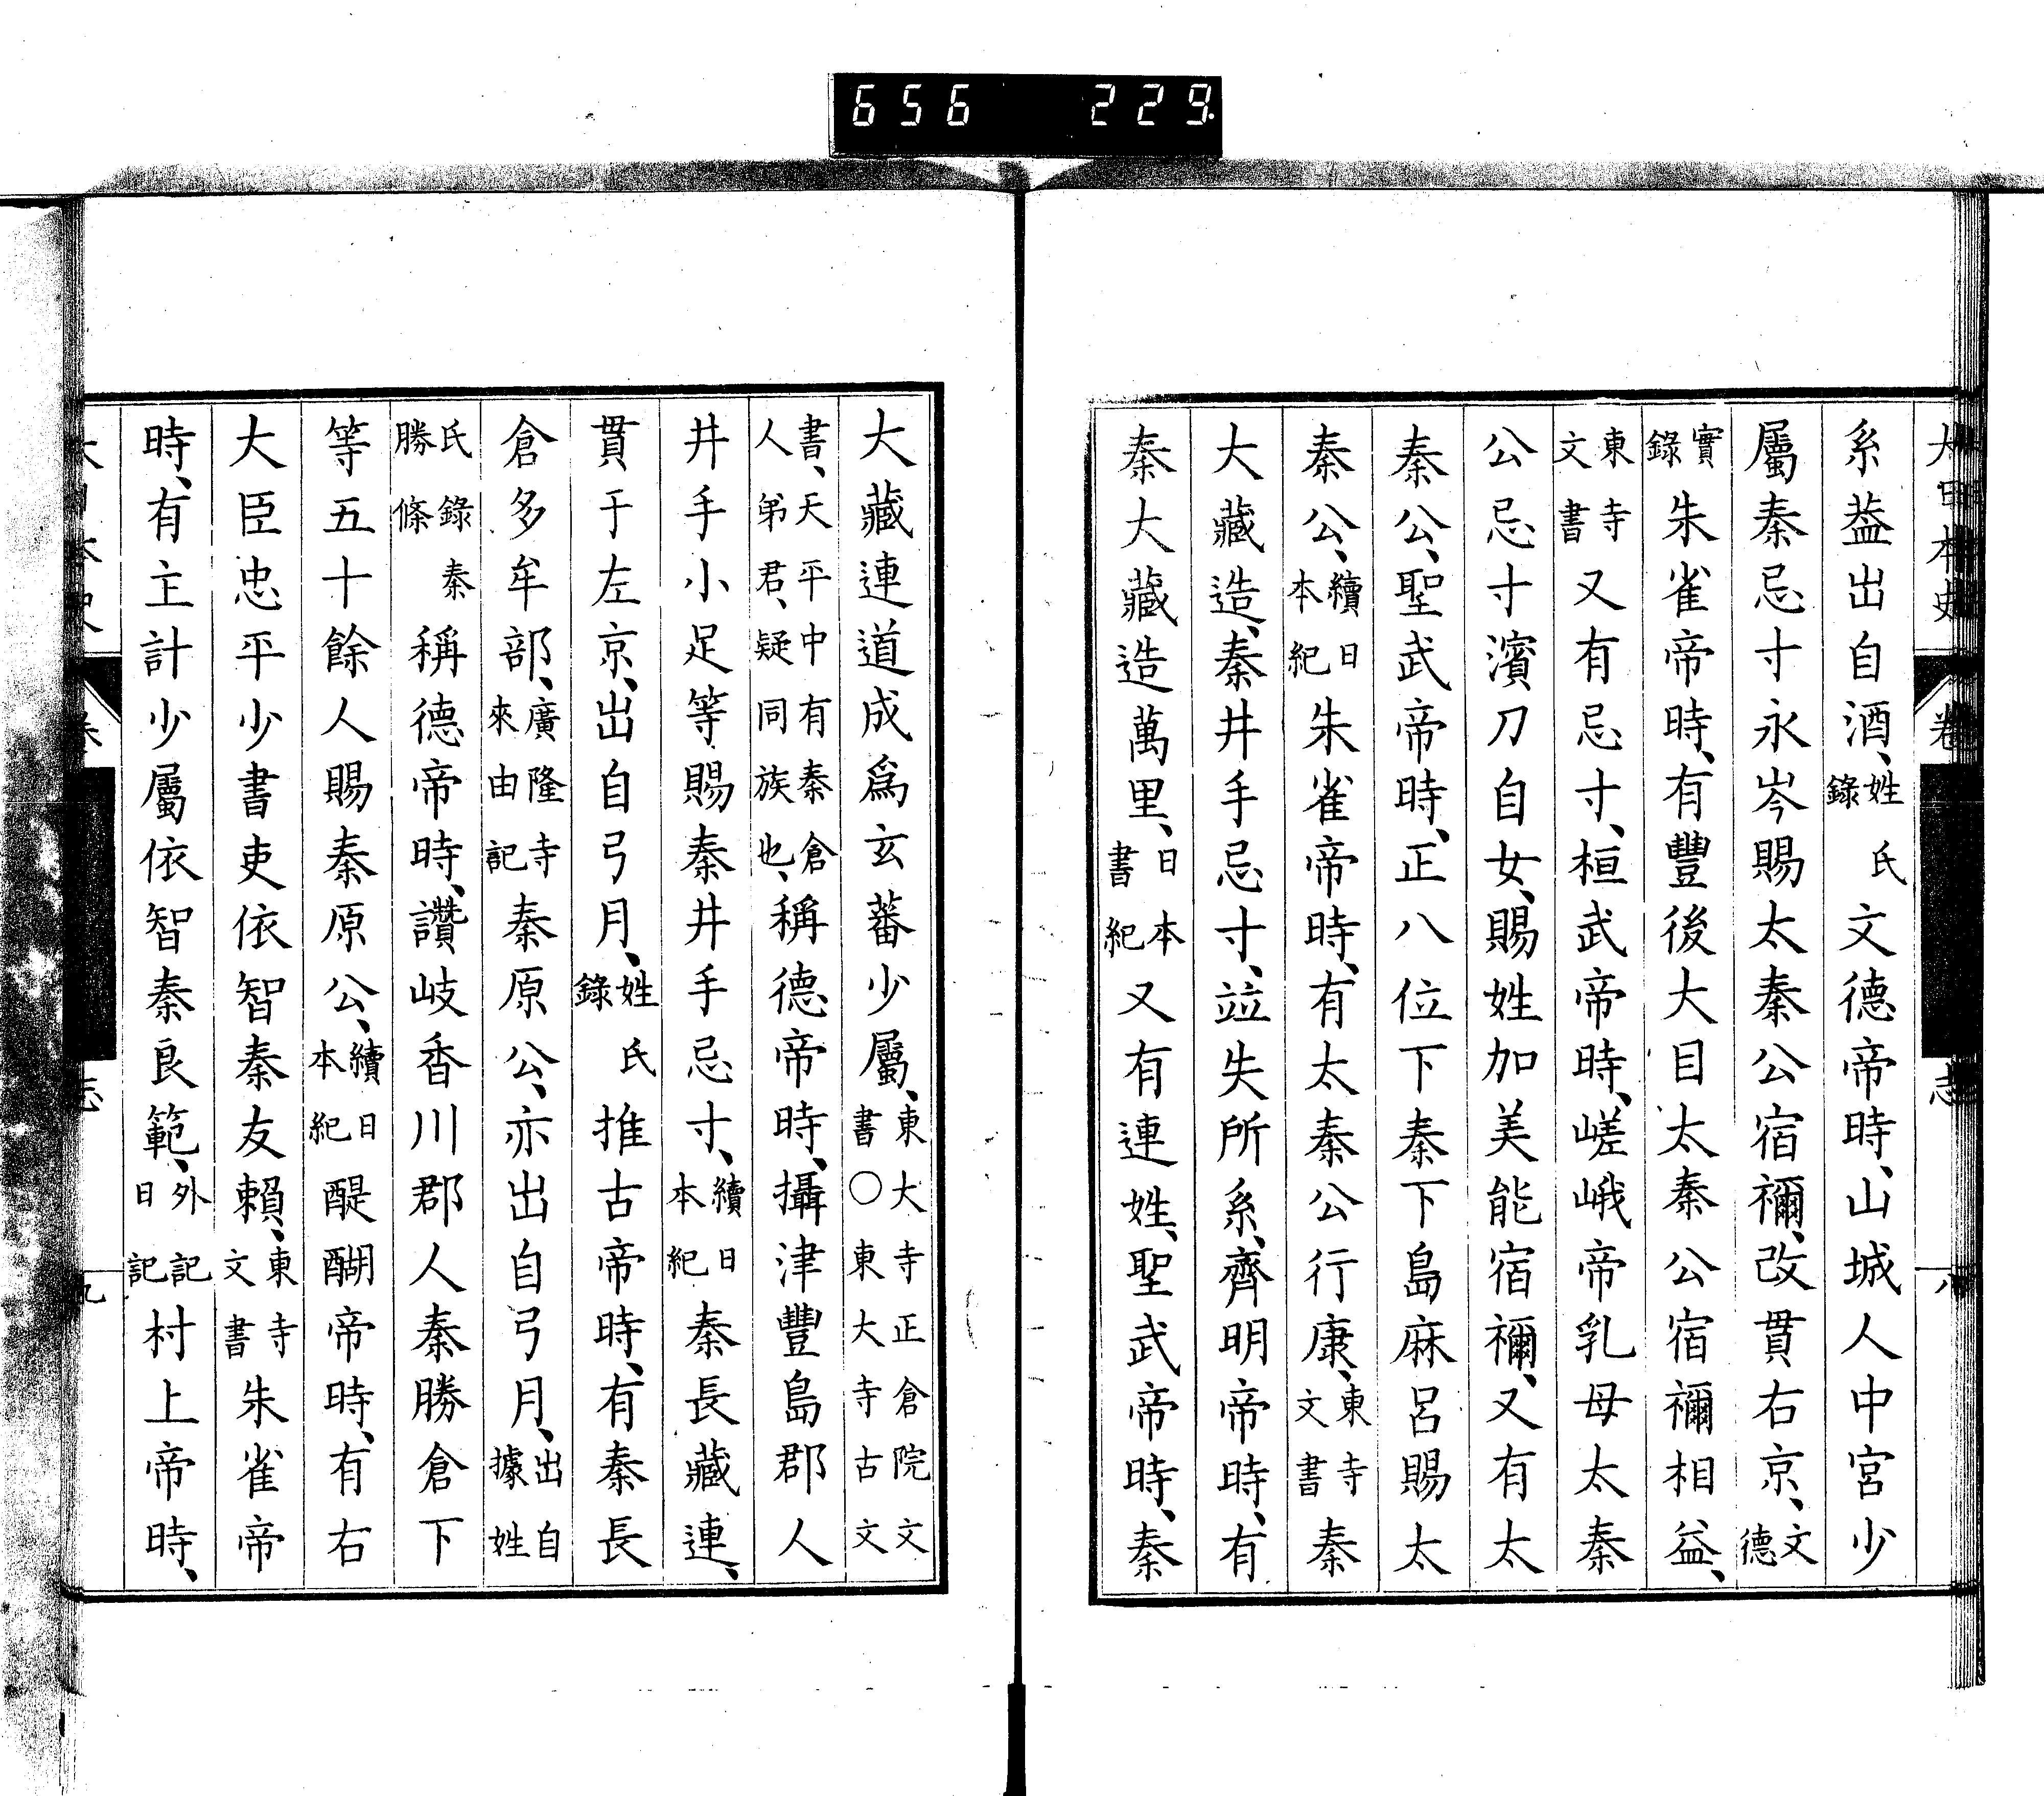 656 229
大日本史 卷 志 八
系、蓋出自酒、姓氏錄文德帝時、山城人中宮少
屬秦忌寸永岑賜太秦公宿禰、改貫右京、文德
實錄朱雀帝時、有豐後大目太秦公宿禰相益、
東寺文書又有忌寸、桓武帝時、嵯峨帝乳母太秦
公忌寸濱刀自女、賜姓加美能宿禰、又有太
秦公、聖武帝時、正八位下秦下島麻呂賜太
秦公、續日本紀朱雀帝時、有太秦公行康、東寺文書秦
大藏造、秦井手忌寸、竝失所系、齊明帝時、有
秦大藏造萬里、日本書紀又有連姓、聖武帝時、秦
大藏連道成爲玄蕃少屬、東大寺正倉院文書○東大寺古文
書、天平中有秦倉人弟君、疑同族也、稱德帝時、攝津豐島郡人
井手小足等賜秦井手忌寸、續日本紀秦長藏連、
貫于左京、出自弓月、姓氏錄推古帝時、有秦長
倉多牟部、廣隆寺來由記秦原公、亦出自弓月、出自據姓
氏錄秦勝條稱德帝時、讚岐香川郡人秦勝倉下
等五十餘人賜秦原公、續日本紀醍醐帝時、有右
大臣忠平少書吏依智秦友賴、東寺文書朱雀帝
時、有主計少屬依智秦良範、外記日記村上帝時、
志 九